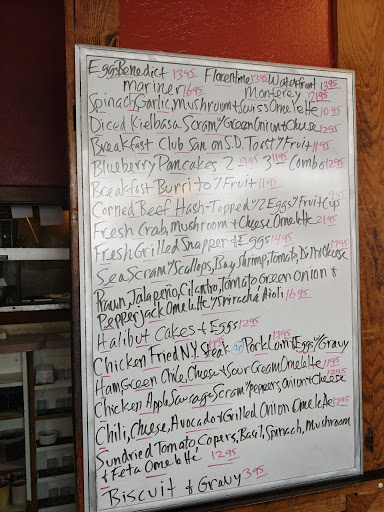 Eggs Benedict 13.95 Florentine 13.95 Waterfront 13.95
Mariner 16.95 Monterey 21.95
Spinach, Garlic, Mushroom & Swiss Omelette 10.95
Diced Kielbasa Scram w/ Green Onion & Cheese 12.95
Breakfast Club San on S.D. Toast w/ Fruit 11.95
Blueberry Pancakes 2 9.95 3 11- Combo 12.95
Breakfast Burrito w/ Fruit 11.95
Corned Beef Hash-Topped w/ 2 Eggs w/ Fruit Cup
Fresh Crab, Mushroom & Cheese Omelette 21.95
Fresh Grilled Snapper & Eggs 14.95
Sea Scram w/ Scallops, Bay Shrimp, Tomato, Dill & Cheese 17.95
Prawn, Jalapeño, Cilantro, Tomato Green Onion &
Pepper Jack Omelette w/ Sriracha Aioli 16.95
Halibut Cakes & Eggs 12.95
Chicken Fried N.Y. Steak or Pork Loin & Eggs w/ Gravy 13.95
Ham, Green Chile, Cheese & Sour Cream Omelette 11.95
Chicken Apple Sausage Scram w/ Peppers, Onion & Cheese 12.95
Chili, Cheese, Avocado & Grilled Onion Omelette 12.95
Sundried Tomato Capers, Basil, Spinach, Mushroom
& Feta Omelette 12.95
Biscuit & Gravy 3.95